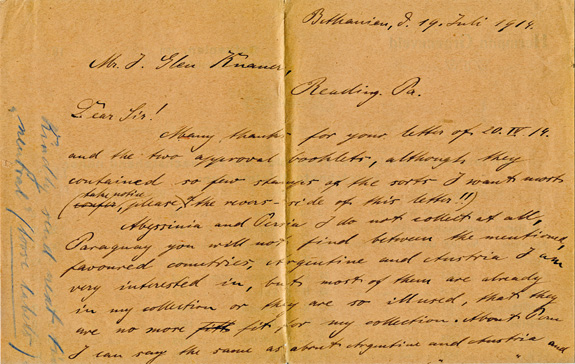 Bethanien, d. 19. Juli 1914.
Mr. J. Glen Knauer,
Reading. Pa.
Dear Sir!
Many thanks for your letter of 20. IV 14.
and the two approval booklets, although they
contained so few stamps of the sorts I want mosts
take notice
(confer, please, the revers-side of this letter!!)
Abyssinia and Persia I do not collect at all,
Paraguay you will not find between the mentioned,
favoured countries, Argentine and Austria I am
very interested in, but most of them are already
in my collection or they are so illused, that they
are no more fit for my collection. About Peru
I can say the same as about Argentine and Austria and
Kindly send next
neutral